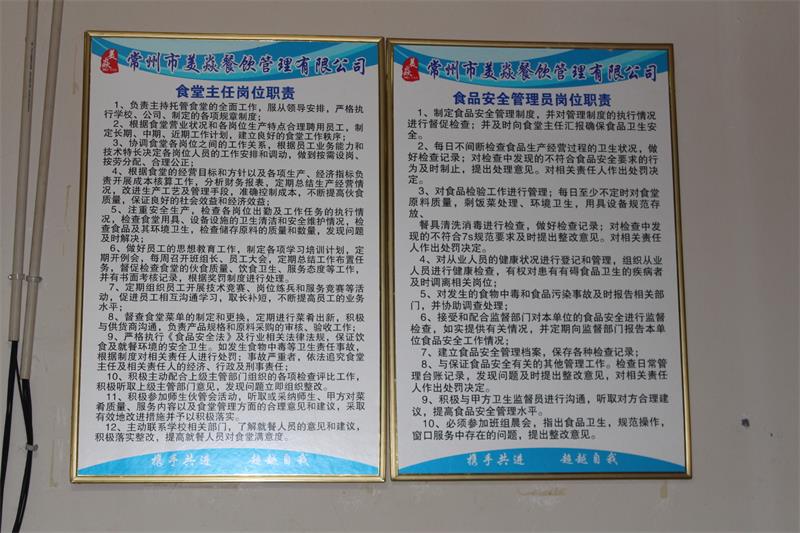 美焱
常州市美焱餐饮管理有限公司
食堂主任岗位职责
1、负责主持托管食堂的全面工作，服从领导安排，严格执
行学校、公司、制定的各项规章制度；
2、根据食堂营业状况和各岗位生产特点合理聘用员工，制
定长期、中期、近期工作计划，建立良好的食堂工作秩序；
3、协调食堂各岗位之间的工作关系，根据员工业务能力和
技术特长决定各岗位人员的工作安排和调动，做到按需设岗、
按劳分配、合理公正；
4、根据食堂的经营目标和方针以及各项生产、经济指标负
责开展成本核算工作，分析财务报表，定期总结生产经营情
况，改进生产工艺及管理手段，准确控制成本，不断提高伙食
质量，保证良好的社会效益和经济效益；
5、注重安全生产，检查各岗位出勤及工作任务的执行情
况，检查食堂用具、设备设施的卫生清洁和安全维护情况，检
查食品及其环境卫生，检查储存原料的质量和数量，发现问题
及时解决；
6、做好员工的思想教育工作，制定各项学习培训计划，定
期开例会，每周召开班组长、员工大会，定期总结工作布置任
务，督促检查食堂的伙食质量、饮食卫生、服务态度等工作，
并有书面考核记录，根据奖罚制度进行处理。
7、定期组织员工开展技术竞赛、岗位练兵和服务竞赛等活
动，促进员工相互沟通学习，取长补短，不断提高员工的业务
水平；
8、督查食堂菜单的制定和更换，定期进行菜肴出新，积极
与供货商沟通，负责产品规格和原料采购的审核、验收工作；
9、严格执行《食品安全法》及行业相关法律法规，保证饮
食及就餐环境的安全卫生。如发生食物中毒等卫生责任事故，
根据制度对相关责任人进行处罚；事故严重者，依法追究食堂
主任及相关责任人的经济、行政及刑事责任；
10、积极主动配合上级主管部门组织的各项检查评比工作，
积极听取上级主管部门意见，发现问题立即组织整改。
11、积极参加师生伙管会活动，听取或采纳师生、甲方对菜
肴质量、服务内容以及食堂管理方面的合理意见和建议，采取
有效地改进措施并予以积极落实。
12、主动联系学校相关部门，了解就餐人员的意见和建议，
积极落实整改，提高就餐人员对食堂满意度。
携手共进 超越自我
美焱
常州市美焱餐饮管理有限公司
食品安全管理员岗位职责
1、制定食品安全管理制度，并对管理制度的执行情况
进行督促检查；并及时向食堂主任汇报确保食品卫生安
全。
2、每日不间断检查食品生产经营过程的卫生状况，做
好检查记录；对检查中发现的不符合食品安全要求的行
为及时制止，提出处理意见。对相关责任人作出处罚决
定。
3、对食品检验工作进行管理；每日至少不定时对食堂
原料质量，剩饭菜处理、环境卫生，用具设备规范存
放、
餐具清洗消毒进行检查，做好检查记录；对检查中发
现的不符合7s规范要求及时提出整改意见。对相关责任
人作出处罚决定。
4、对从业人员的健康状况进行登记和管理，组织从业
人员进行健康检查，有权对患有有碍食品卫生的疾病者
及时调离相关岗位；
5、对发生的食物中毒和食品污染事故及时报告相关部
门，并协助调查处理；
6、接受和配合监督部门对本单位的食品安全进行监督
检查，如实提供有关情况，并定期向监督部门报告本单
位食品安全工作情况；
7、建立食品安全管理档案，保存各种检查记录；
8、与保证食品安全有关的其他管理工作。检查日常管
理台账记录，发现问题及时提出整改意见，对相关责任
人作出处罚决定。
9、积极与甲方卫生监督员进行沟通，听取对方合理建
议，提高食品安全管理水平。
10、必须参加班组晨会，指出食品卫生，规范操作，
窗口服务中存在的问题，提出整改意见。
携手共进 超越自我